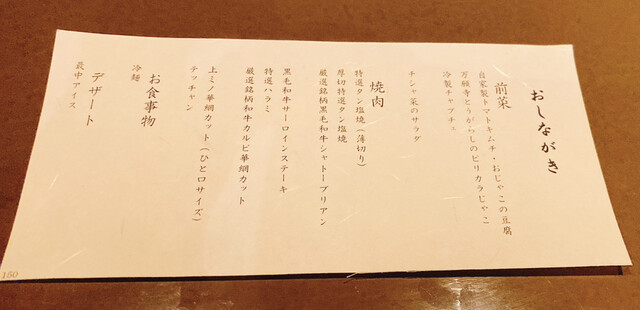 おしながき
前菜
自家製トマトキムチ・おじゃこの豆腐
万願寺とうがらしのピリカラじゃこ
冷製チャプチェ
チシャ菜のサラダ
焼肉
特選タン塩焼(薄切り)
厚切特選タン塩焼
厳選銘柄黒毛和牛シャトーブリアン
黒毛和牛サーロインステーキ
特選ハラミ
厳選銘柄和牛カルビ華網カット
上ミノ華網カット(ひと口サイズ)
テッチャン
お食事物
冷麺
デザート
最中アイス
150